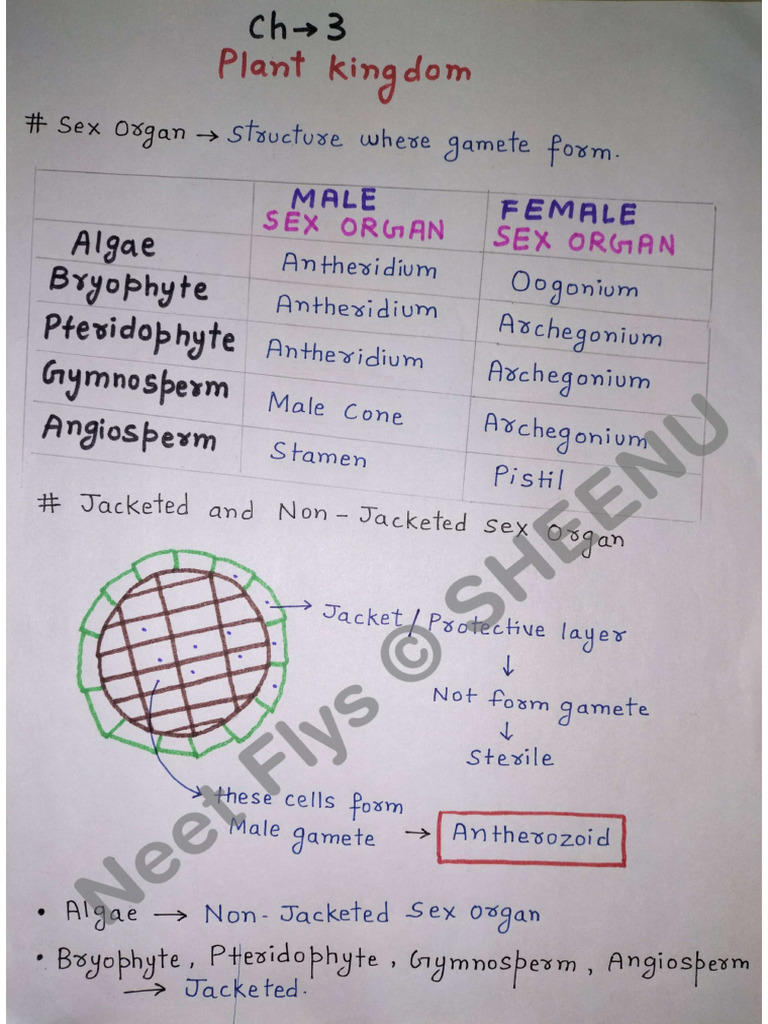 Ch→3
Plant kingdom
# Sex Organ → Structure where gamete form.
MALE SEX ORGAN FEMALE SEX ORGAN
Algae Antheridium Oogonium
Bryophyte Antheridium Archegonium
Pteridophyte Antheridium Archegonium
Gymnosperm Male Cone Archegonium
Angiosperm Stamen Pistil
# Jacketed and Non-Jacketed Sex Organ
→ Jacket/Protective layer
↓
Not form gamete
↓
Sterile
these cells form
Male gamete → Antherozoid
• Algae → Non-Jacketed Sex Organ
• Bryophyte, Pteridophyte, Gymnosperm, Angiosperm
→ Jacketed.
Neet Flys © SHEENU